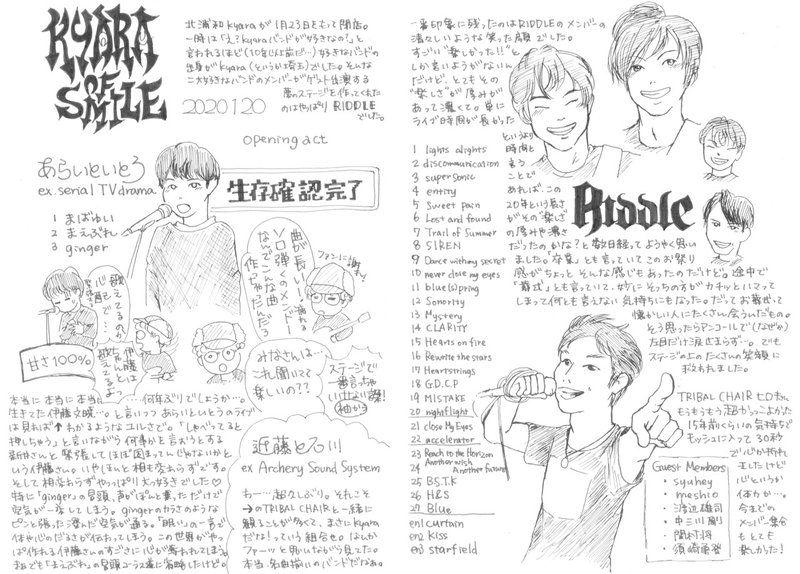 KYARA
OF
SMILE
北浦和Kyaraが1月23日をもって閉店。
一時は「え?Kyaraバンドが好きなの?」と
言われるほど(10年以上前だ…)好きなバンドの
出身がKyara(というか埼玉)でした。そんな
二大好きなバンドのメンバーがゲスト出演する
夢のステージを作ってくれた
のはやっぱりRIDDLE
でした。
20201.20
opening act
あらいといとう
ex. serial TV drama
1 まばゆい
2 まえぶれ
3 ginger
生存確認完了
曲が長い!流れる
ソロ弾くのメンドー
なんでこんな曲
作っちゃったんだろ
ファンに謝れ!
歌えてるのか
心配で…
伊藤
ちゃんと
歌えてるよ
甘さ100%
みなさんは…
これ聞いてて
楽しいの??
ステージで
一番言っちゃ
いけない事!
袖から
本当に本当に本当に………何年ぶりでしょうか…。
生きてた伊藤文暁…。と言いつつあらいといとうのライブ
は見れば↑わかるようなユルしさでの。「しゃべってると
押しちゃう」と言いながら何事かを言おうとする
新井さんと緊張してほぼ固まってんじゃないかと
いう伊藤さん。いやほんと相も変わらずです。
そして相変わらずやっぱり大っ好きでした♡
特に「ginger」の冒頭、声がぽんと乗っただけで
空気が一変してしまう。gingerのカラさのような
ピンと張った澄んだ空気が通る。「眠い」の一言が
体や心のだるさが伝わってしまう。この世界がやっ
ぱ作れる伊藤さんのすごさに心が奪われてしまう。
まぁでも「まえぶれ」の冒頭コーラス雑に省略したけど。
近藤と石川
ex Archery Sound System
わー…超久しぶり。それこそ
→のTRIBAL CHAIRと一緒に
観ることが多くて、まさにKyara
だな!っていう組合せ。なんか
ファーッと明いながら見てた。
本当、名曲揃いのバンドだなぁ。
一番印象に残ったのはRIDDLEのメンバーの
清々しいような笑った顔でした。
すごい"楽しかった!!"と
しか言いようがないん
だけど、とてもその
"楽しさ"が厚みが
あって濃くて。単に
ライブ時間が長かった
というより
時間と
言う
ことで
あれば、この
20年という長さ
がその"楽しさ
の厚みや濃さ
だったのかな?と数日経ってようやく思い
ました。「卒業」とも言っていてこのお祭り
感がちょっとそんな感じもあったのだけど。途中で
「葬式」とも言っていて、妙にそっちの方がカチッとハマって
しまって何とも言えない気持ちにもなった。だってお葬式って
懐かしい人にたくさん会うんだもの。
そう思ったらアンコールで(なぜか)
左目だけ涙止まらず…。でも
ステージの上のたくさんの笑顔に
救われました。
1 lights alights
2 discommunication
3 super sonic
4 entity
5 Sweet pain
6 Lost and found
7 Trail of Summer
8 SIREN
9 Dance with my secret
10 never close my eyes
11 blue(s)pring
12 Sonority
13 Mystery
14 CLARITY
15 Hearts on fire
16 Rewrite the stars
17 Heartstrings
18 G.D.C.P
19 MISTAKE
20 nightflight
21 close My Eyes
22 accelerator
23 Reach to the Horizon
Another wish
24 Another future
25 B.S.T.K
26 H&S
27 Blue
en1 curtain
en2 Kiss
en3 starfield
RIDDLE
TRIBAL CHAIR ヒロキさん
もうもうもう超かっこよかた
15年前くらいの気持ちで
モッシュに入って30秒
で心が折れ
ましたけど
心というか
体力か…。
今までの
メンバー集合
もとても
楽しかった!
Guest Members
・syuhey
・meshio
・渡辺雄司
・中三川剛
・関村将
・須崎亜登